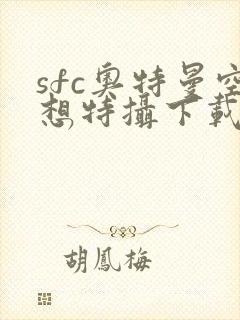 sfc奥特曼空
想特攝下載
胡鳳梅